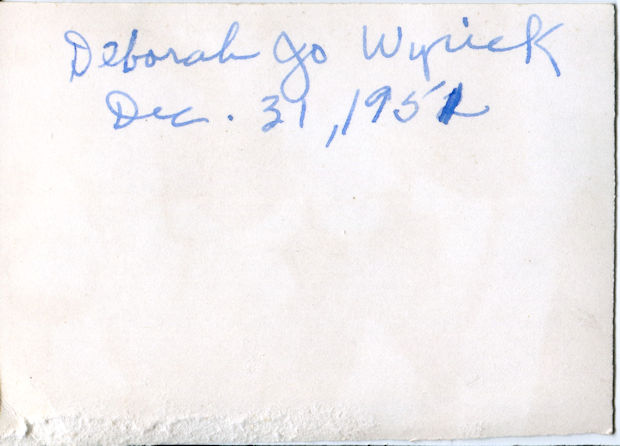 Deborah Jo Wyrick
Dec. 31, 1951